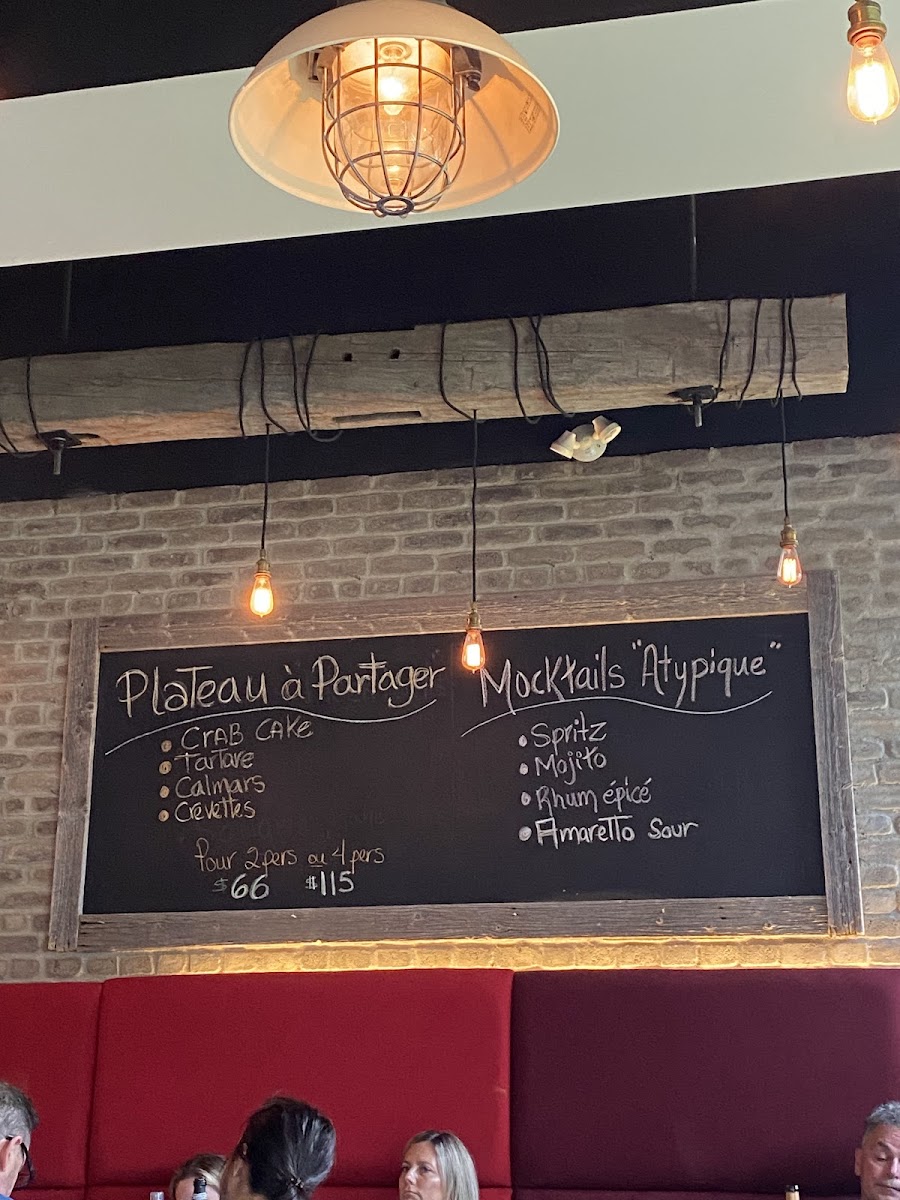 Plateau à Partager
• CRAB CAKE
• Tartare
• Calmars
• Crevettes
Pour 2 pers ou 4 pers
$66 $115
Mocktails "Atypique"
• Spritz
• Mojito
• Rhum épicé
• Amaretto Sour